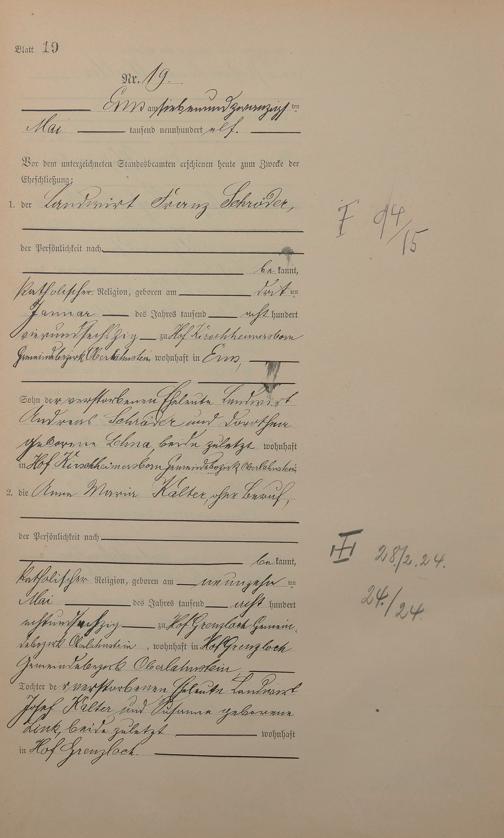 Blatt 19
Nr. 19.
Ems am siebenundzwanzigsten
Mai tausend neunhundert elf.
Vor dem unterzeichneten Standesbeamten erschienen heute zum Zwecke der
Eheschließung:
1. der Landwirt Franz Schröder,
der Persönlichkeit nach
be kannt,
katholischer Religion, geboren am dritten
Januar des Jahres tausend acht hundert
vierundsechszig zu Hof Kirschheimersborn
Gemeindebezirk Oberlahnstein wohnhaft in Ems,
Sohn der verstorbenen Eheleute Landwirt
Andreas Schröder und Dorothea
geborene beide zuletzt wohnhaft
in Hof Kirschheimersborn Gemeindebezirk Oberlahnstein
2. die Anna Maria Kalter, ohne Beruf,
der Persönlichkeit nach
be kannt,
katholischer Religion, geboren am neunzehn ten
Mai des Jahres tausend acht hundert
achtundsechzig zu Hof Grenzloch Gemein-
debezirk Oberlahnstein, wohnhaft in Hof Grenzloch
Gemeindebezirk Oberlahnstein
Tochter der verstorbenen Eheleute Landwirt
Josef Kalter und Susanna geborene
Link, beide zuletzt wohnhaft
in Hof Grenzloch.
94/15
28/2.24.
24./24.